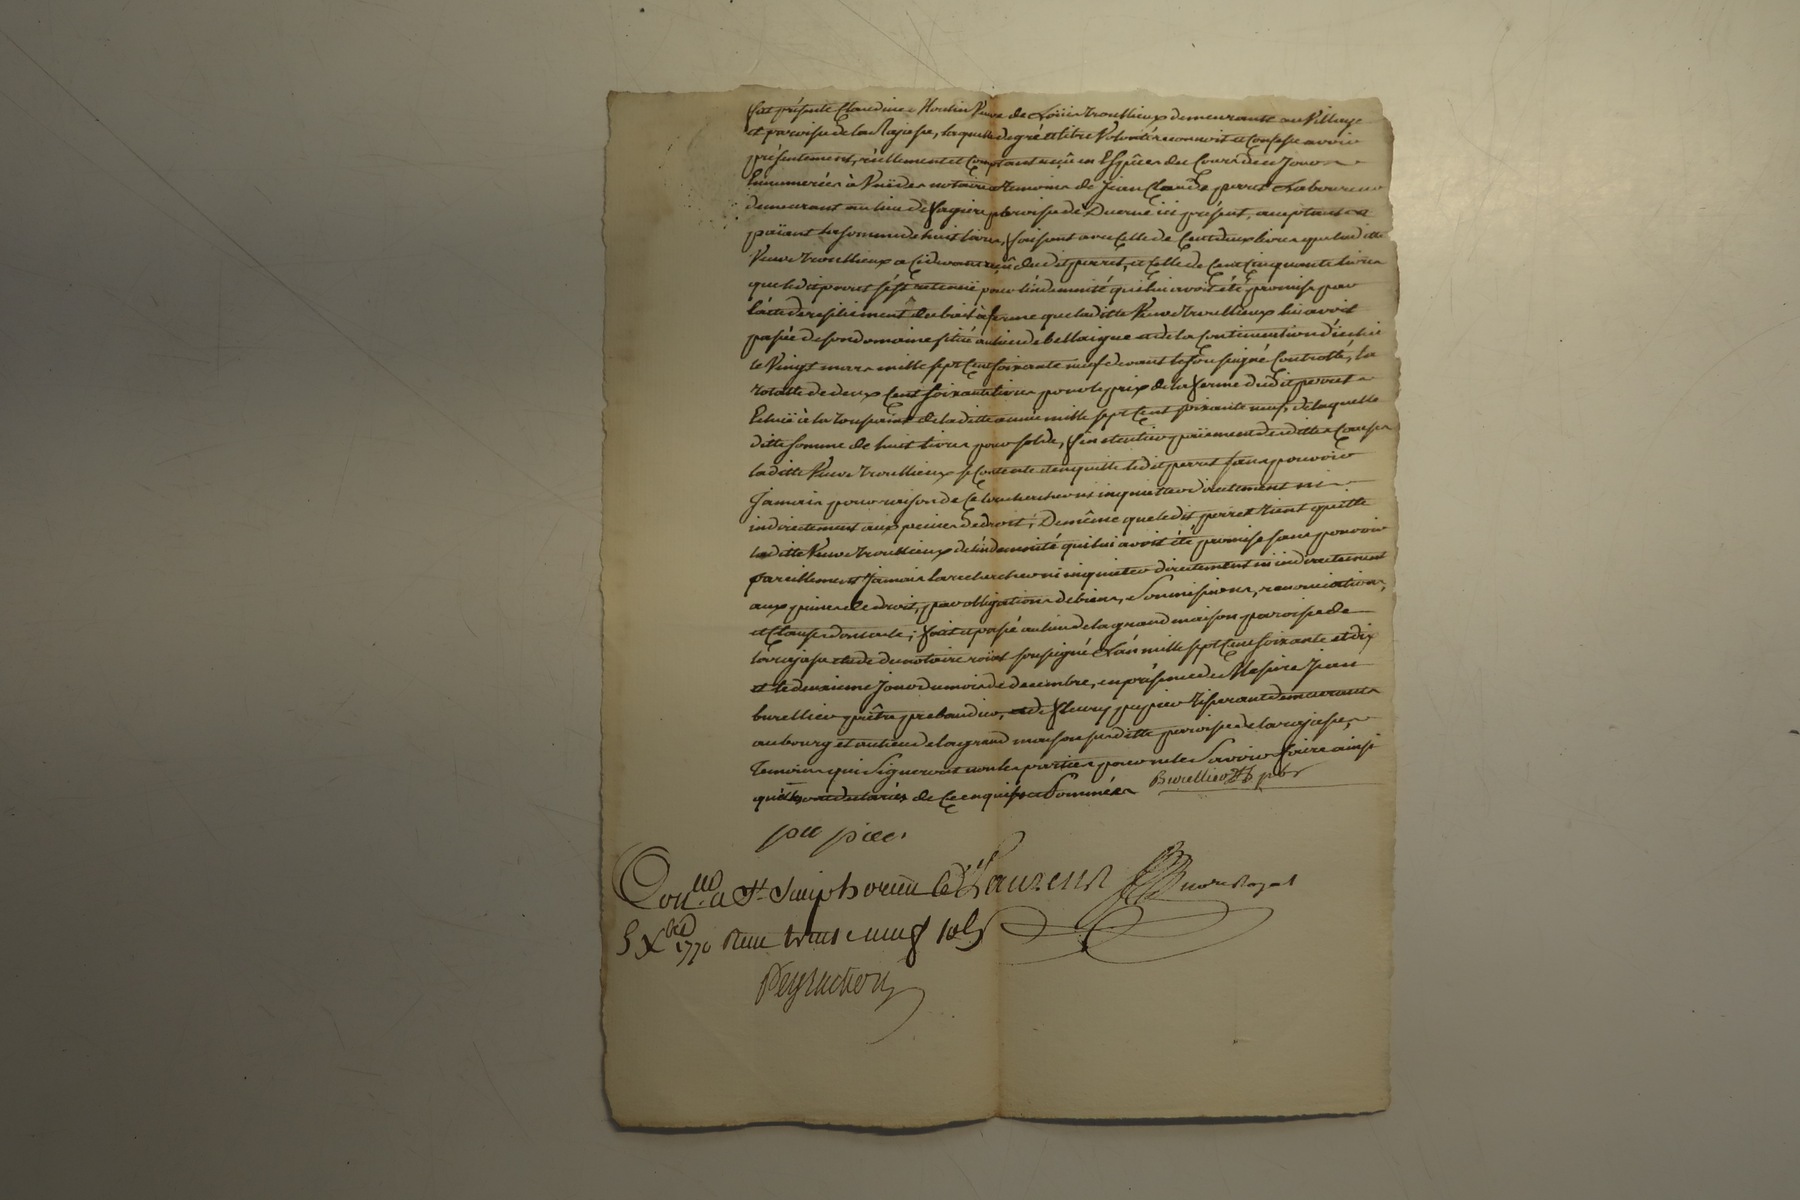 fut présente Claudine Moulin Veuve de Loüis trouillieux demeurante au Village
et paroisse de la Rajasse, laquelle de gré et libre Volonté reconnoit et Confesse avoir
présentement, réellement et Comptant reçû en Espêces du Cours de ce Jour
Enumerées à Vuë des notaire et temoins de Jean Claude perret Laboureur
demeurant au lieu de paroisse de Duerne ici présent, acceptant et
païant la somme de huit livres, faisant avec Celle de Cent deux livres que laditte
Veuve trouillieux a Cidevant reçû dudit perret, et Celle de Cent Cinquante livres
que ledit perret s'est retenuë pour l'indemnité qui lui avoit été promise par
l'acte de resiliement du bail à ferme que laditte Veuve trouillieux lui avoit
passée de son domaine situé au lieu de bellaigue et de la Continuation d'icelui
le Vingt mars mille sept Cent soixante neuf devant le soussigné Controllé, la
totalle de deux Cent soixante livres pour le prix de la ferme dudit perret
Echuë à la toussaint de laditte année mille sept Cent soixante neuf, de laquelle
ditte somme de huit livres pour solde, païement desdittes Causes
laditte Veuve trouillieux se Contente et en quitte ledit perret sans pouvoir
Jamais pour raison de Ce le rechercher ni inquietter directement ni
indirectement aux peines de droit; De même que ledit perret tient quitte
laditte Veuve trouillieux de l'indemnité qui lui avoit été promise sans pouvoir
pareillement Jamais la rechercher ni inquieter directement ni indirectement
aux peines de droit, par obligations de biens, Soumissions, renonciations,
et Clauses dont acte; fait et passé au lieu de la grand maison paroisse de
larajasse etude du notaire roïal soussigné L'an mille sept Cent soixante et dix
et le deuxieme Jour du mois de decembre, en présence de Messire Jean
burellier prêtre prebandier, et de fleury pupier tisserant demeurants
au bourg et au lieu de la grand maison susditte paroisse de la rajasse,
temoins qui Signeront non les parties pour ne le Savoir faire ainsi
qu'elles ont declarées de Ce enquises et Sommées Burellier ptre
pu pier
Conllé a St. Simphorien le Laurent nore Royal
5 Xbre 1770 Reçu trente neuf sols
Peyrachon